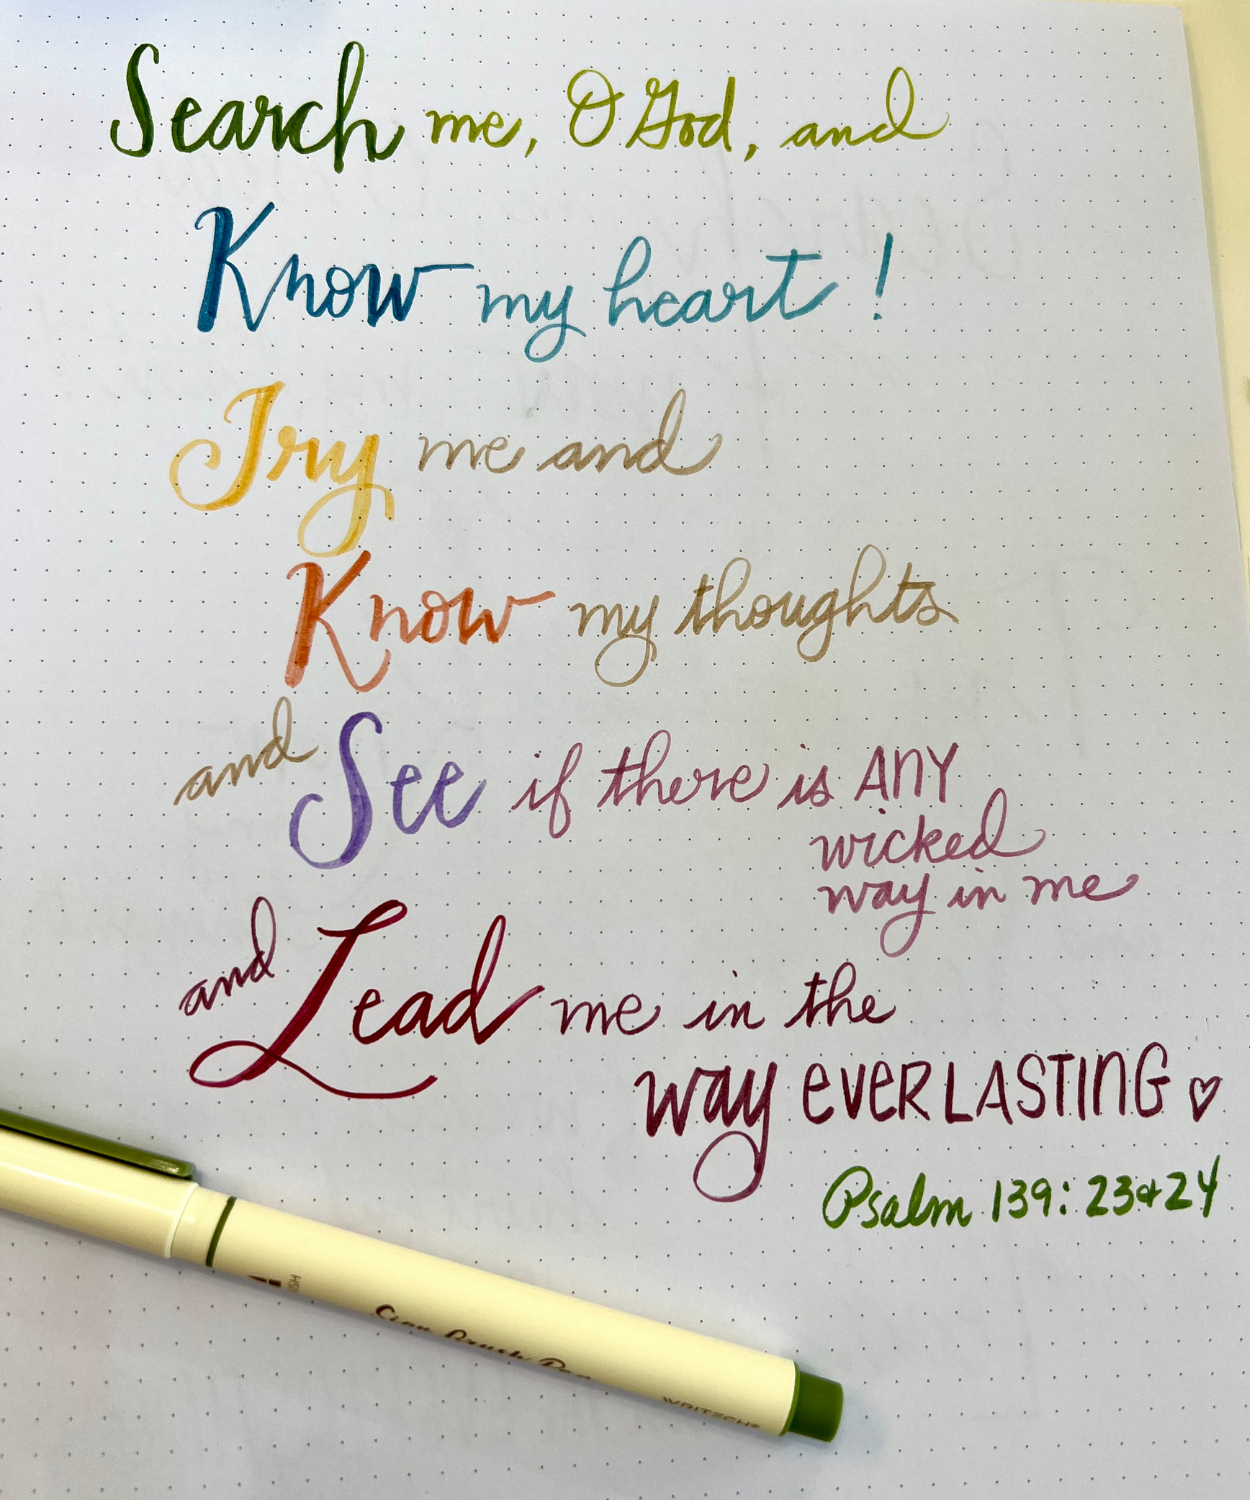 Search me, O God, and
Know my heart!
Try me and
Know my thoughts
and See if there is ANY
wicked
way in me
and Lead me in the
way EVERLASTING
Psalm 139:23&24
Sign Brush Pen
WRITECH